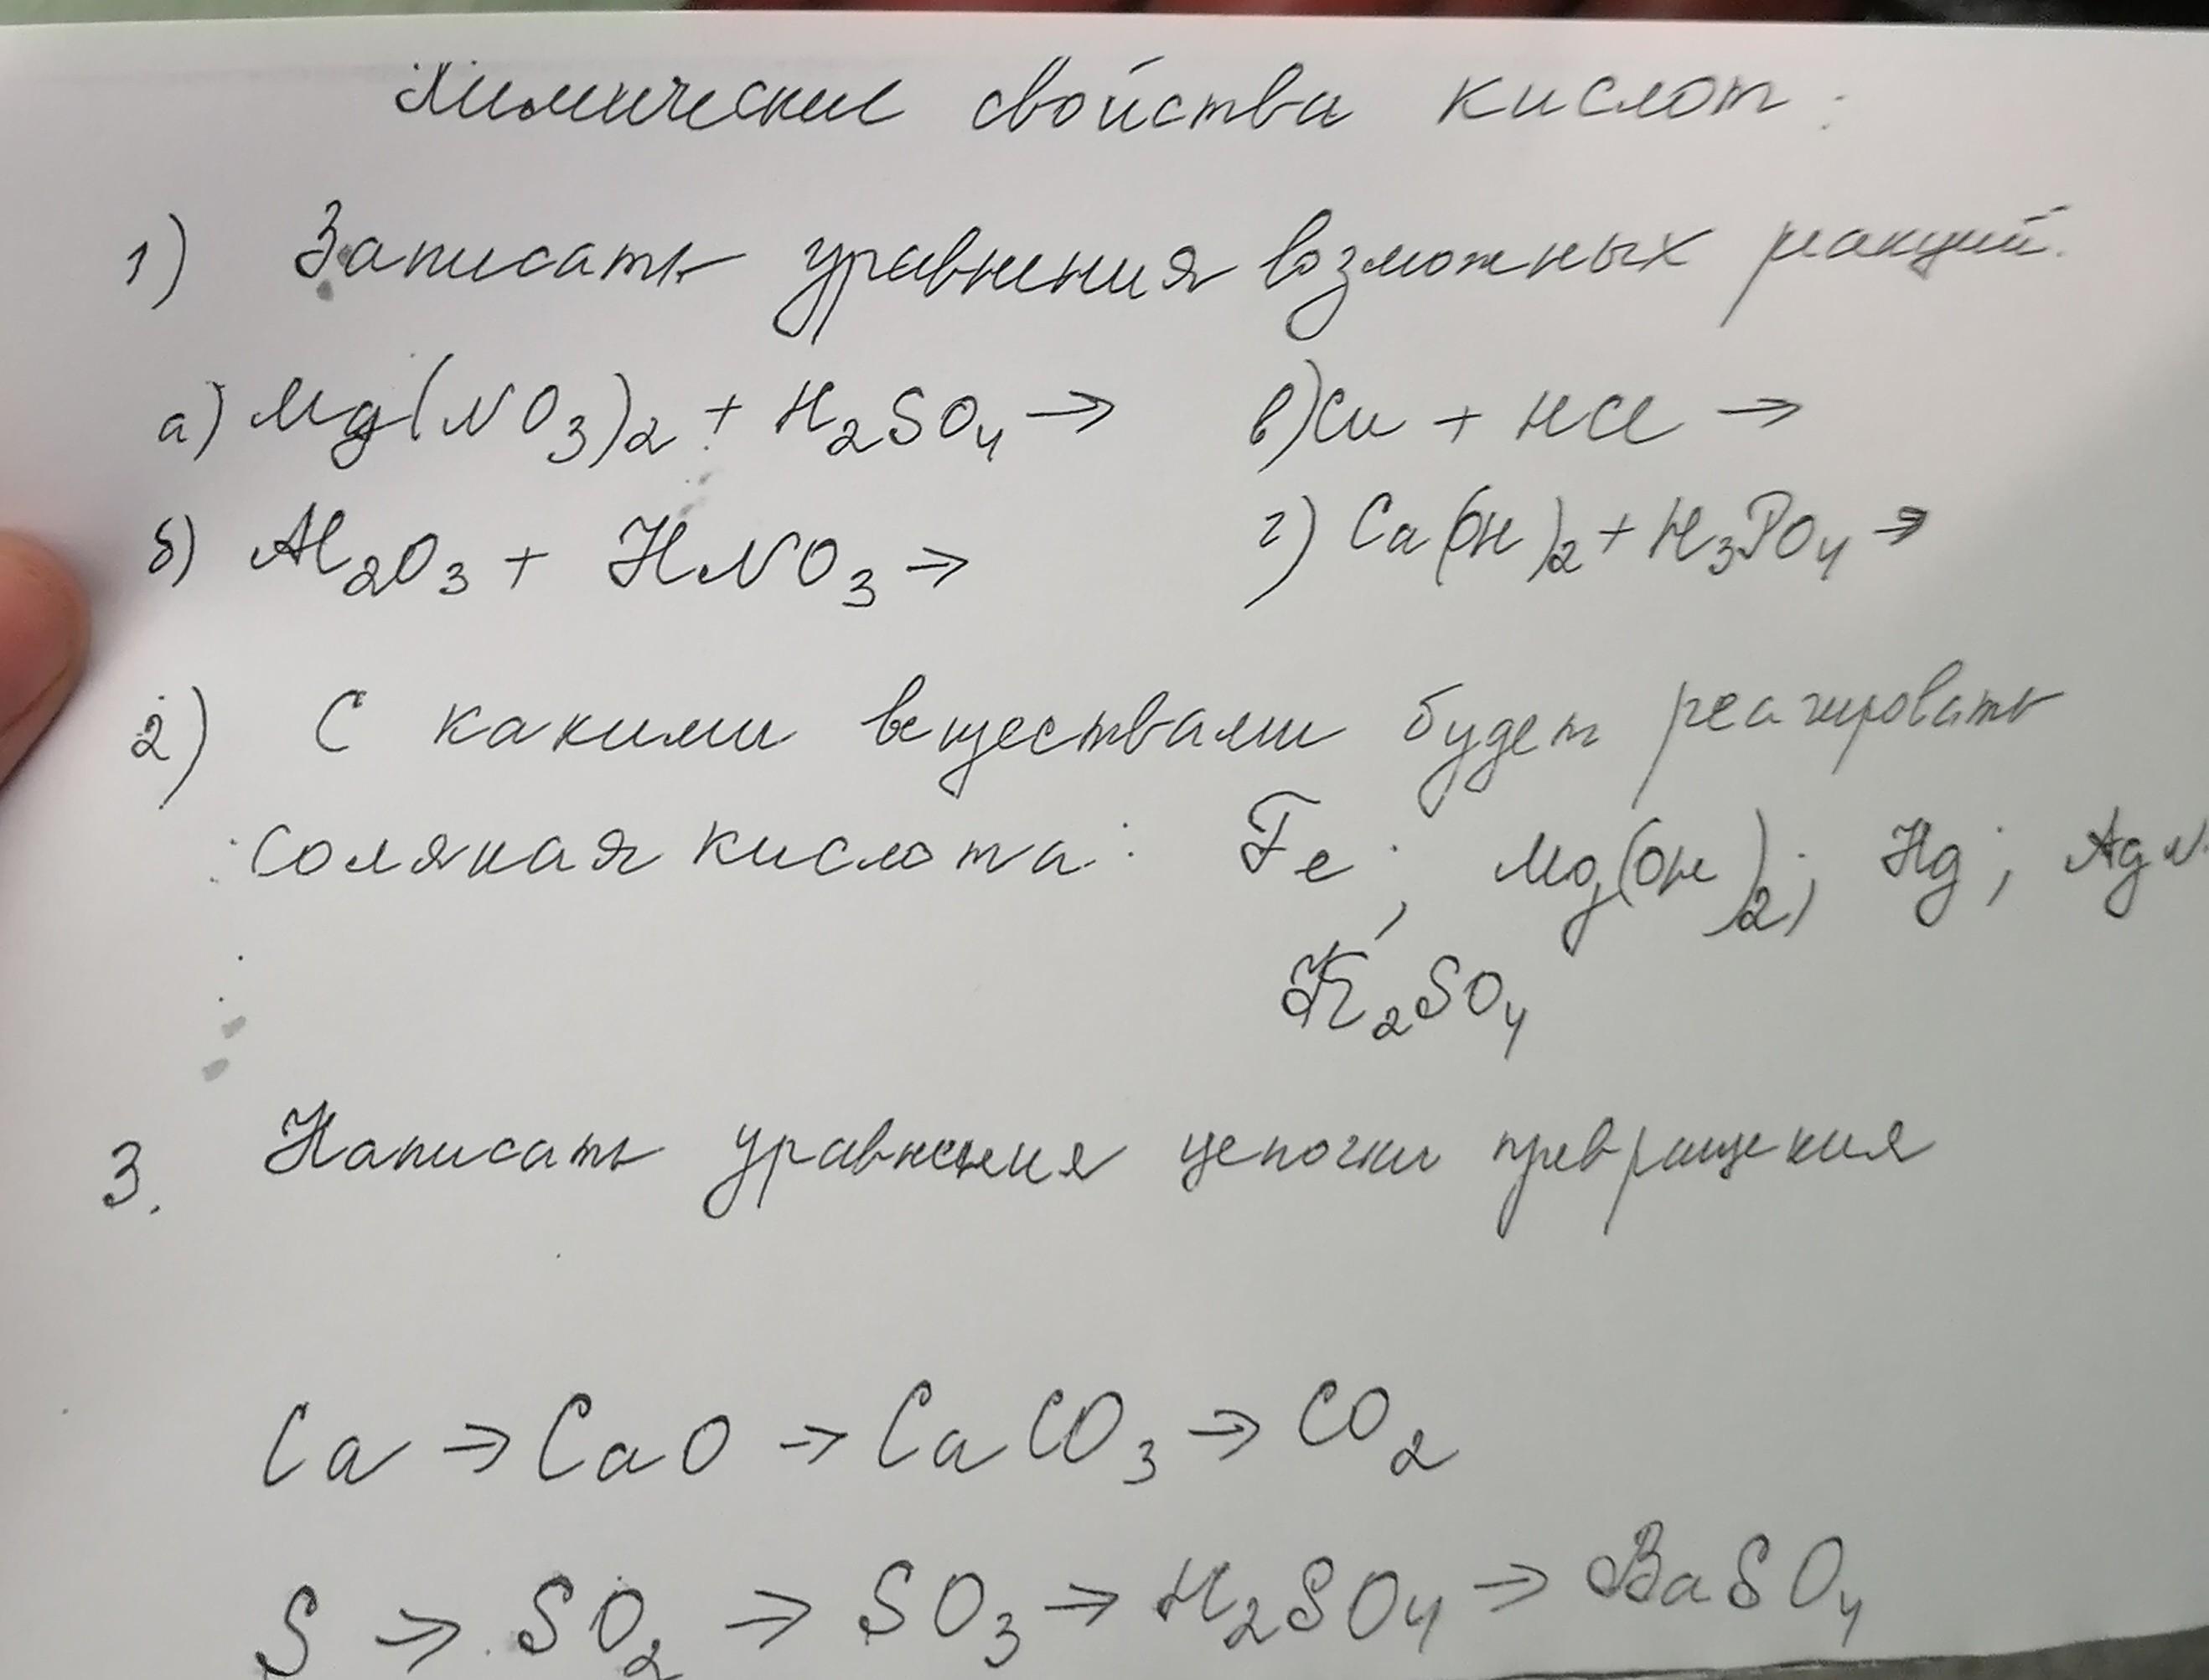 Химические свойства кислот:
1) Записать уравнения возможных реакций.
а) Mg(NO₃)₂ + H₂SO₄ → в) Cu + HCl →
б) Al₂O₃ + HNO₃ → г) Ca(OH)₂ + H₃PO₄ →
2) С какими веществами будет реагировать
соляная кислота: Fe; Mg(OH)₂; Hg; AgN
K₂SO₄
3. Написать уравнения цепочки превращения
Ca → CaO → CaCO₃ → CO₂
S → SO₂ → SO₃ → H₂SO₄ → BaSO₄